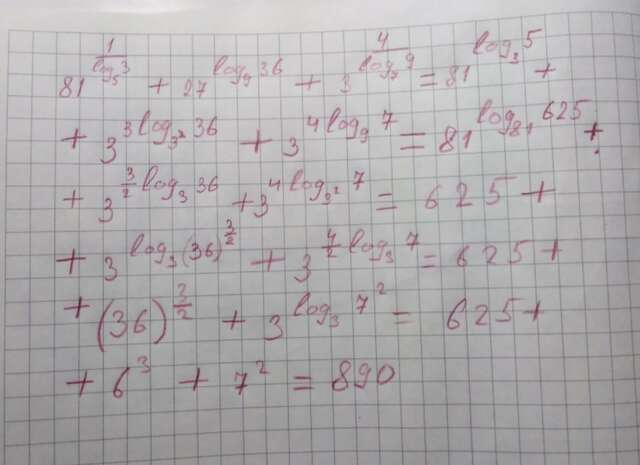 81^(1/log₅3) + 27^(log₉36) + 3^(4/log₇9) = 81^(log₃5) +
+ 3^(3log₃²36) + 3^(4log₉7) = 81^(log₈₁625) +
+ 3^(3/2 log₃36) + 3^(4log₃²7) = 625 +
+ 3^(log₃(36)^(3/2)) + 3^(4/2 log₃7) = 625 +
+ (36)^(3/2) + 3^(log₃7²) = 625 +
+ 6³ + 7² = 890